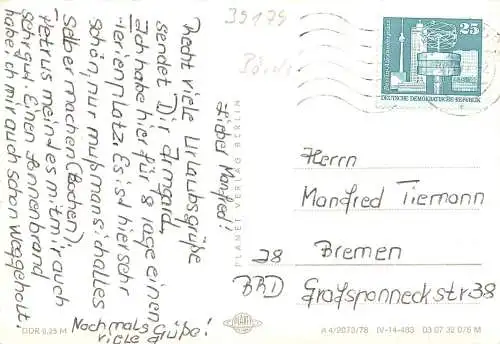 39179
25
DEUTSCHE DEMOKRATISCHE REPUBLIK
Lieber Manfred!
Recht viele Urlaubsgrüße
sendet Dir Irmgard,
Ich habe hier für 8 Tage einen
Ferienplatz. Es ist hier sehr
schön, nur muß man sich alles
selber machen (Kochen),
Petrus meint es mit mir auch
sehr gut. Einen Sonnenbrand
habe ich mir auch schon weggeholt.
Nochmals
viele Grüße!
Herrn
Manfred Tiemann
28 Bremen
BRD Grafsponneckstr 38
PLANET VERLAG BERLIN
DDR 0,25 M
PLANET
A 4/2070/78 IV-14-483 03 07 32 076 M